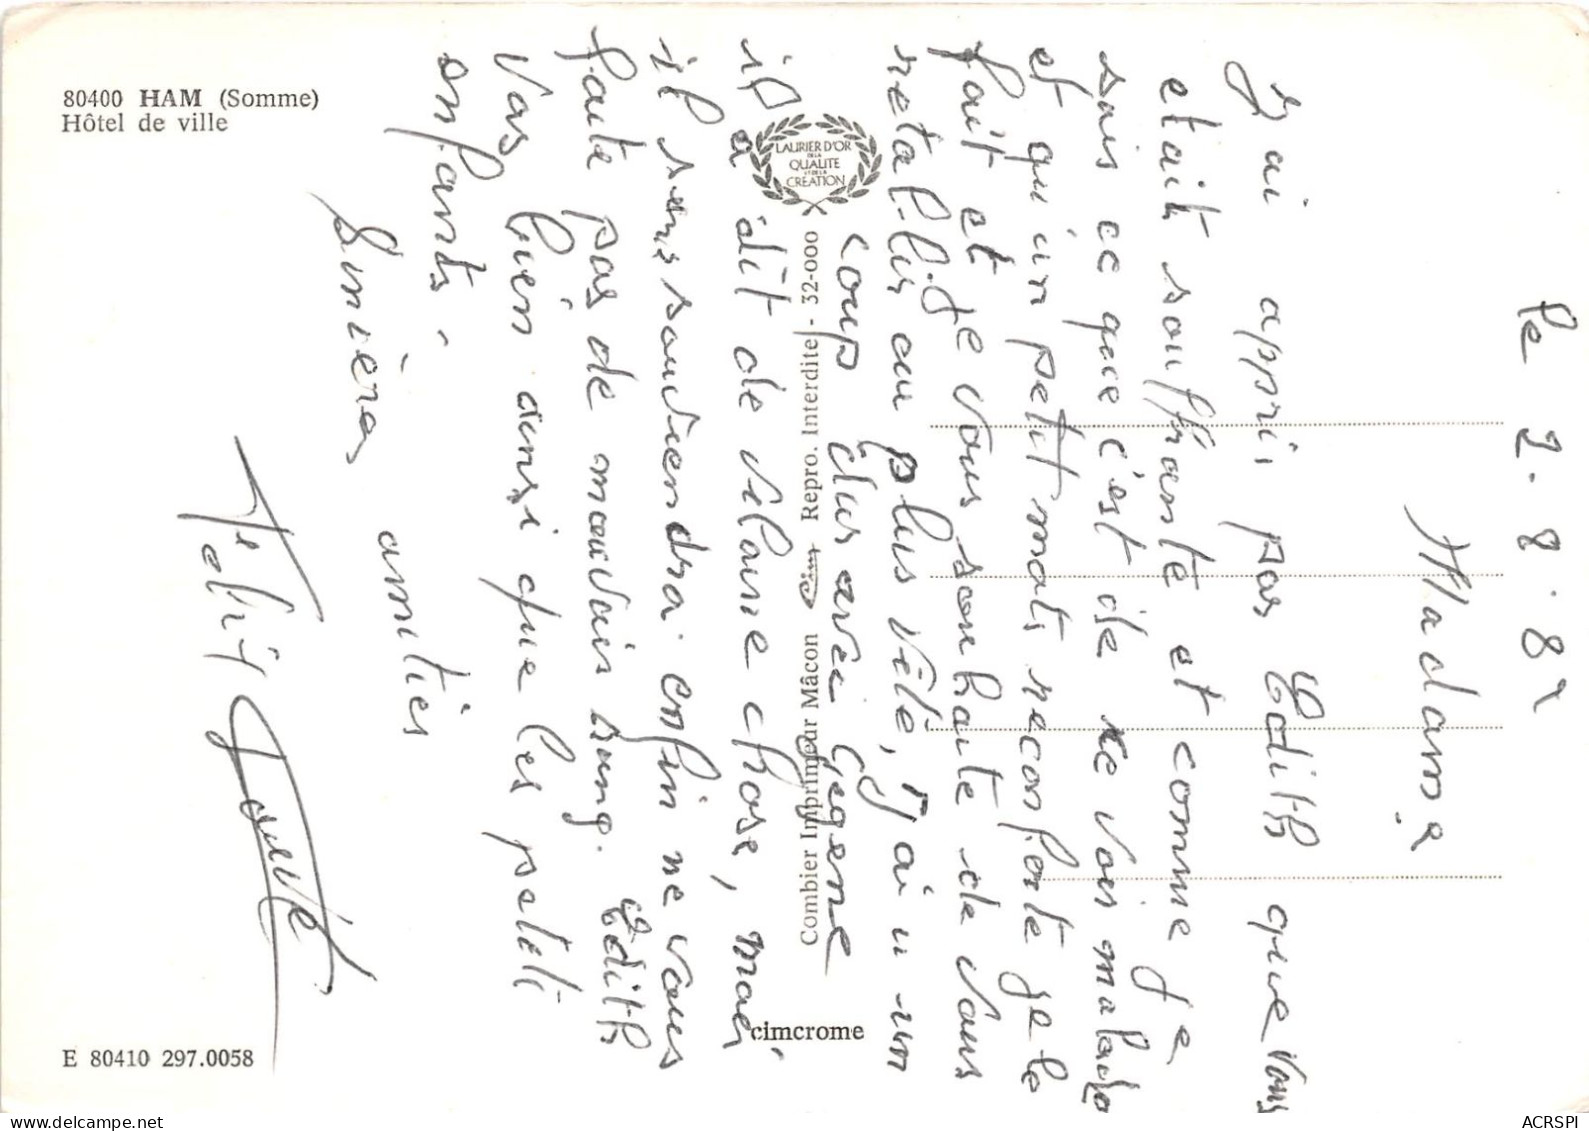 80400 HAM (Somme)
Hôtel de ville
LAURIER D'OR
DE LA
QUALITE
ET DE LA
CREATION
Combier Imprimeur Mâcon Repro. Interdite - 32-000
cimcrome
E 80410 297.0058
le 2.8.82
Madame
J'ai appris par Edith que vous
etait souffrante et comme je
sais ce que c'est de ce voir malade
et qu'un petit mots reconforte je le
fait et je vous souhaite de vous
retablir au plus vite, J'ai u un
coup dur avec Gegene
il a dit de vilaine chose, mais
il sens souviendra enfin ne vous
faite pas de mauvais sang. Edith
Vas bien ainsi que les petits
enfants.
Sincères amitiès
ACRSPI